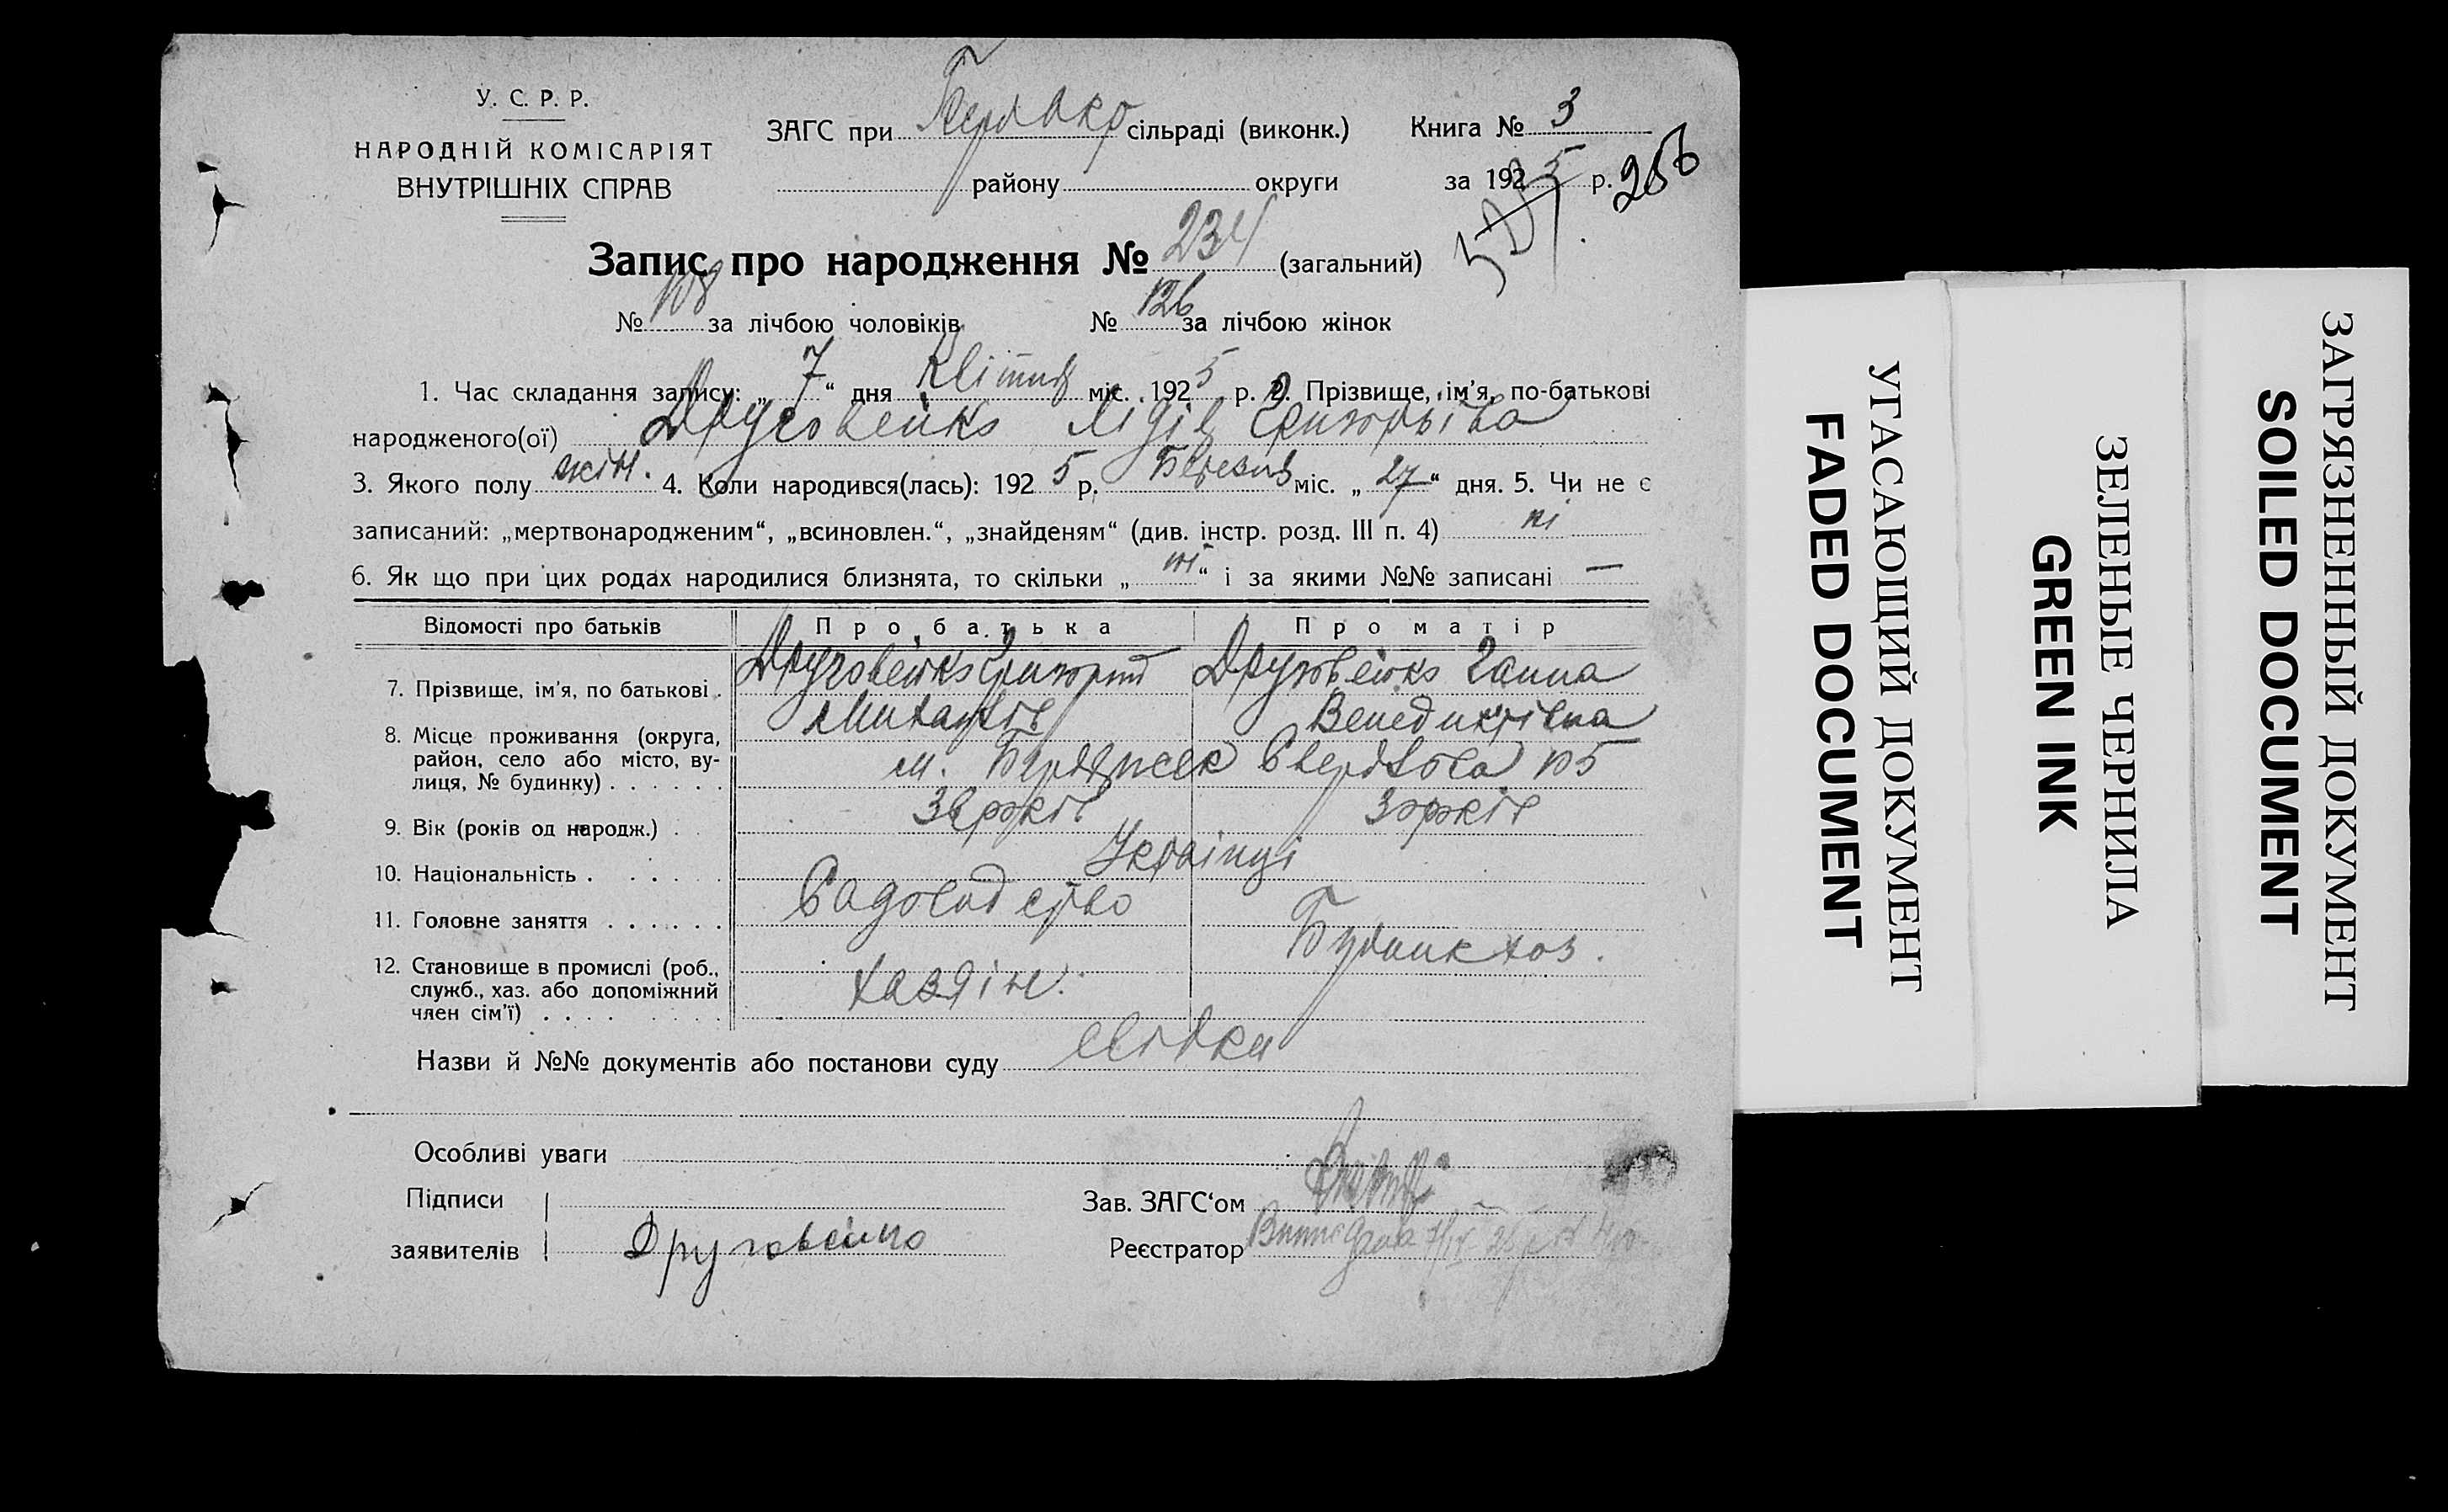 У. С. Р. Р.
НАРОДНІЙ КОМІСАРІЯТ
ВНУТРІШНІХ СПРАВ
ЗАГС при сільраді (виконк.) Книга № 3
району округи за 1925 р. 256
Запис про народження № 234 (загальний)
№ 108 за лічбою чоловіків № 126 за лічбою жінок
1. Час складання запису: „7“ дня Квітня міс. 1925 р. 2. Прізвище, ім'я, по-батькові
народженого(ої) Друговейко Лідія Григорівна
3. Якого полу жін. 4. Коли народився(лась): 1925 р. Березня міс. „27“ дня. 5. Чи не є
записаний: „мертвонародженим“, „всиновлен.“, „знайденям“ (див. інстр. розд. III п. 4) ні
6. Як що при цих родах народилися близнята, то скільки „ні“ і за якими №№ записані —
Відомості про батьків Про батька Про матір
7. Прізвище, ім'я, по батькові. Друговейко Григорій Друговейко Ганна
Михайлів Венедиктівна
8. Місце проживання (округа,
район, село або місто, ву-
лиця, № будинку) . . . . . . м. Свердлова
9. Вік (років од народж.) . . років 30 років
10. Національність . . . . . Українці
11. Головне заняття . . . . . . Садоводство
12. Становище в промислі (роб.,
служб., хаз. або допоміжний
член сім'ї) . . . . . . . . хазяін. хоз.
Назви й №№ документів або постанови суду
Особливі уваги
Підписи
заявителів Друговейко
Зав. ЗАГС'ом
Реєстратор
УГАСАЮЩИЙ ДОКУМЕНТ
FADED DOCUMENT
ЗЕЛЕНЫЕ ЧЕРНИЛА
GREEN INK
ЗАГРЯЗНЕННЫЙ ДОКУМЕНТ
SOILED DOCUMENT